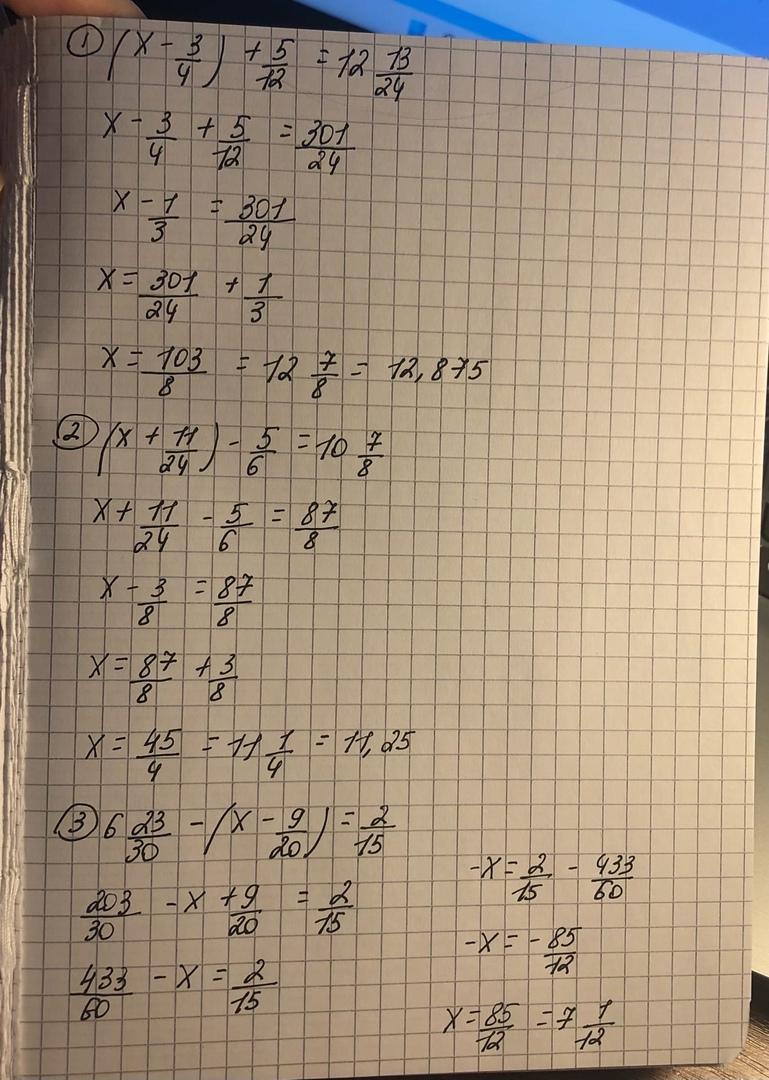 ① (x - 3/4) + 5/12 = 12 13/24
x - 3/4 + 5/12 = 301/24
x - 1/3 = 301/24
x = 301/24 + 1/3
x = 103/8 = 12 7/8 = 12,875
② (x + 11/24) - 5/6 = 10 7/8
x + 11/24 - 5/6 = 87/8
x - 3/8 = 87/8
x = 87/8 + 3/8
x = 45/4 = 11 1/4 = 11,25
③ 6 23/30 - (x - 9/20) = 2/15
203/30 - x + 9/20 = 2/15
433/60 - x = 2/15
-x = 2/15 - 433/60
-x = - 85/12
x = 85/12 = 7 1/12